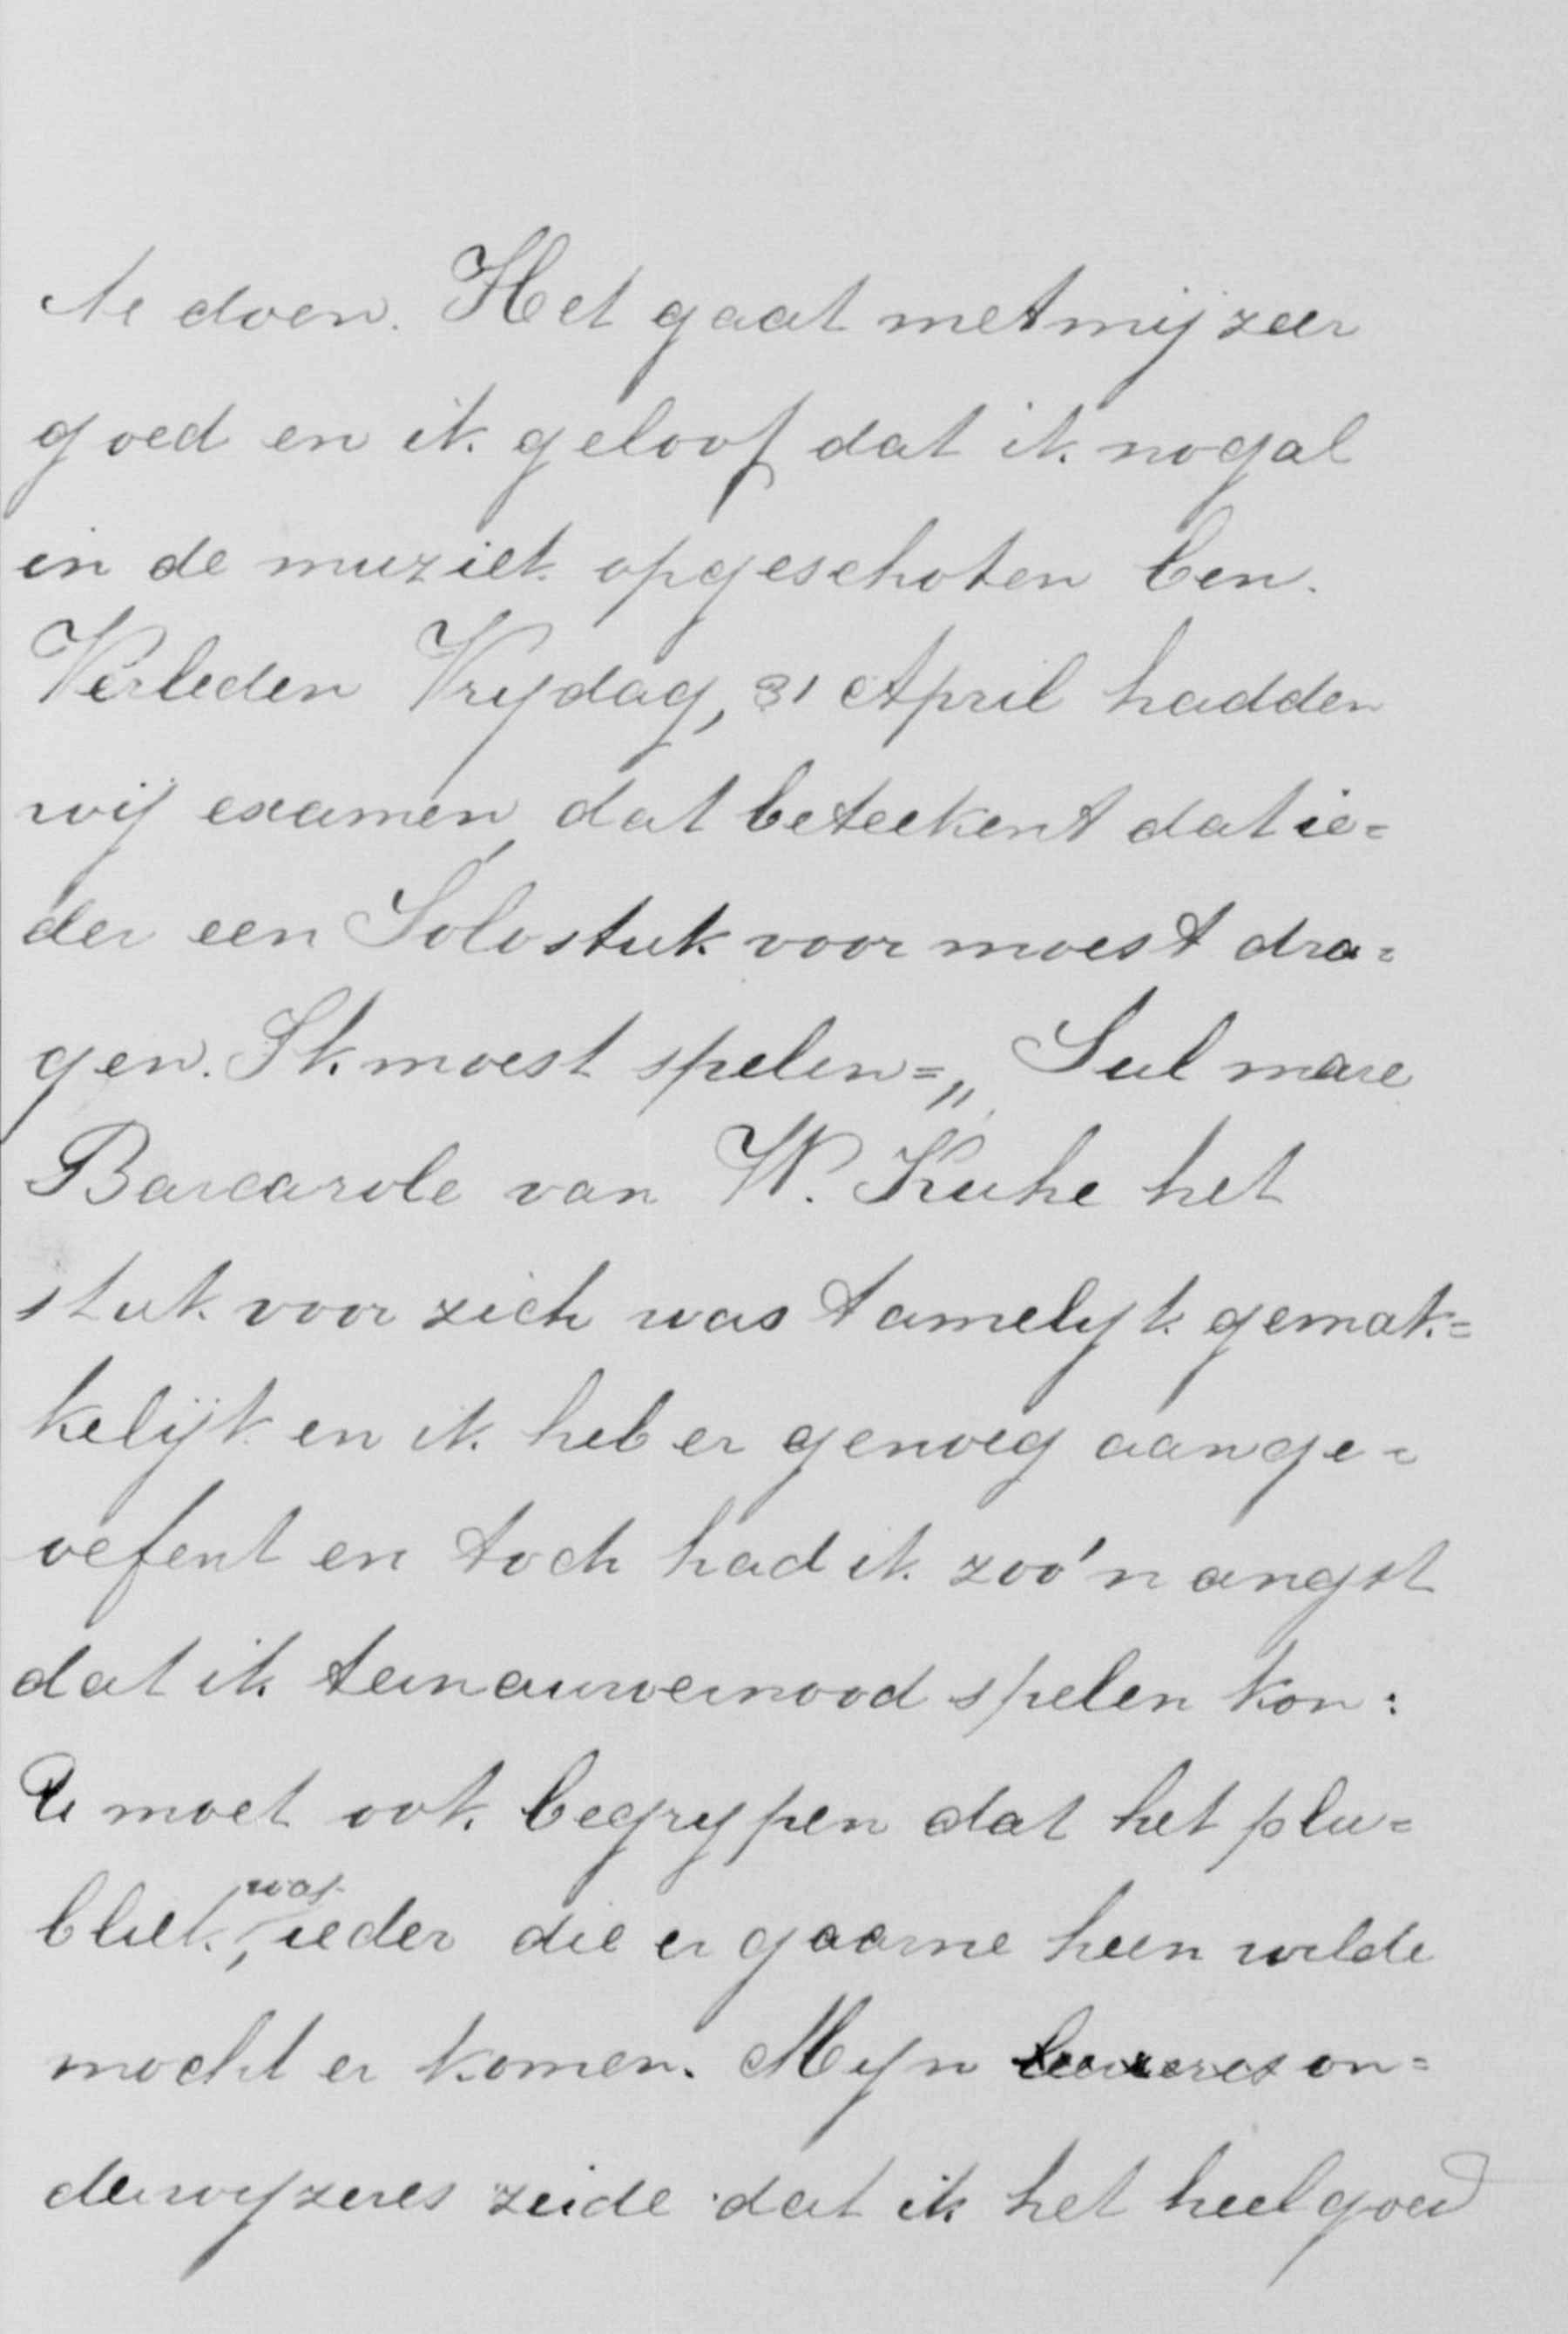 te doen. Het gaat met mij zeer
goed en ik geloof dat ik nogal
in de muziek opgeschoten ben.
Verleden Vrydag, 31 April hadden
wij examen, dat beteekent dat ie=
der een Solostuk voor moest dra=
gen. Ik moest spelen = „ Sul mare
Barcarole van W. Kuhe het
stuk voor zich was tamelyk gemak=
kelijk en ik heb er genoeg aange=
oefent en toch had ik zoo'n angst
dat ik ternauwernood spelen kon:
U moet ook begrypen dat het plu=
bliek, was ieder die er gaarne heen wilde
mocht er komen. Myn on=
derwyzeres zeide dat ik het heel goed